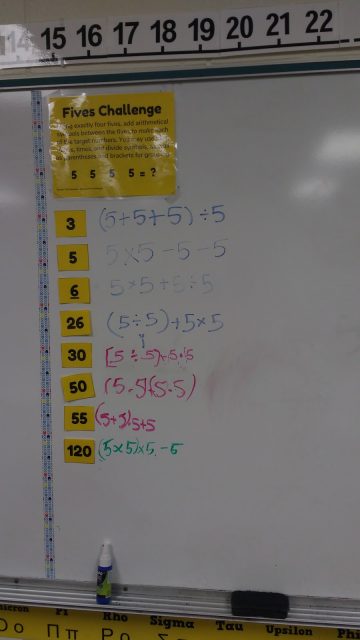 14 15 16 17 18 19 20 21 22
Fives Challenge
exactly four fives, add arithmetical
symbols between the fives to make each
of the target numbers. You may use
times, and divide symbols,
parentheses and brackets for
5 5 5 5 = ?
3 (5+5+5)÷5
5 5×5-5-5
6 5×5+5÷5
26 (5÷5)+5×5
30
50
55
120 (5×5)×5.-5
micron Pi Rho Sigma Tau Upsilon Phi
Oo Ππ Ρρ